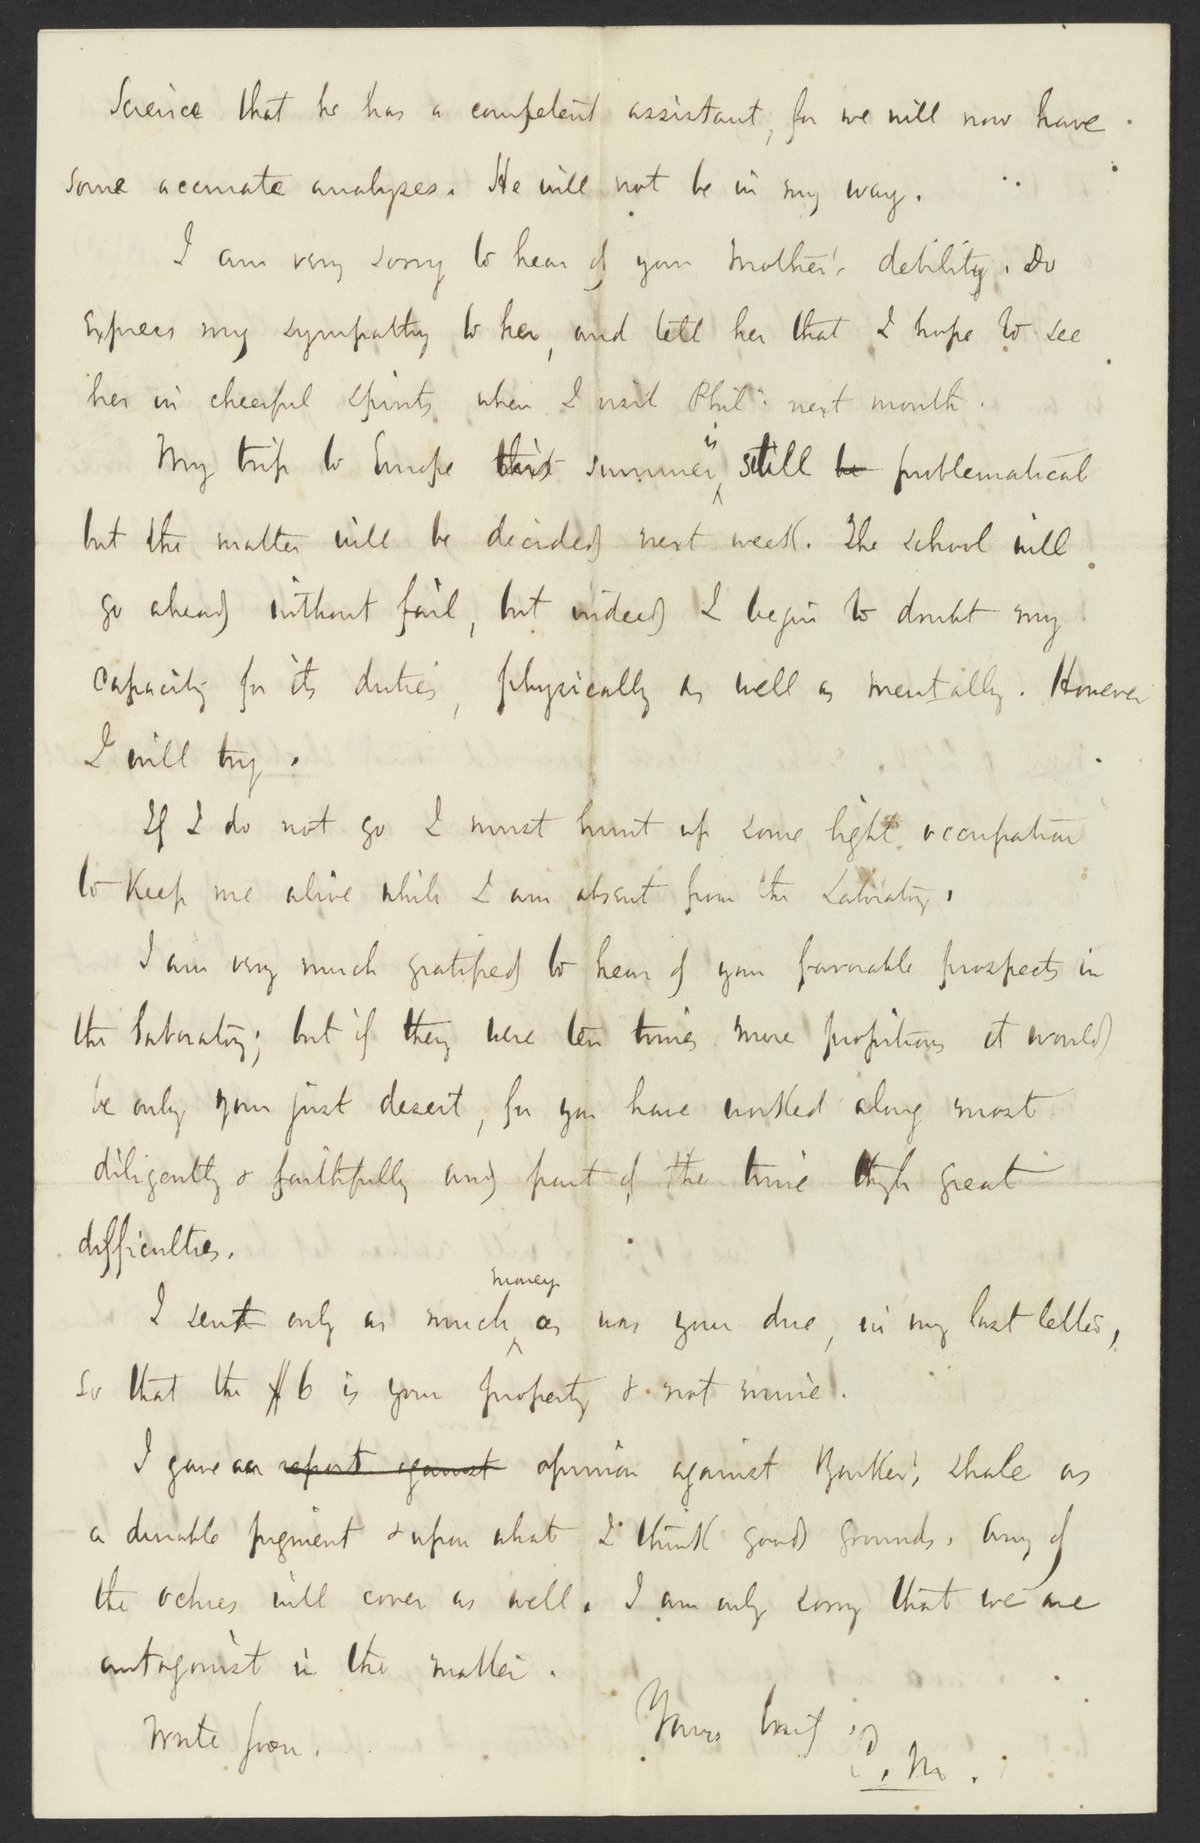 Science that he has a competent assistant, for we will now have
some accurate analyses. He will not be in my way.
I am very sorry to hear of your Mother's debility. Do
express my sympathy to her, and tell her that I hope to see
her in cheerful spirits when I visit Phila. next month.
My trip to Europe this summer is still be problematical
but the matter will be decided next week. The school will
go ahead without fail, but indeed I begin to doubt my
capacity for its duties, physically as well as mentally. However
I will try.
If I do not go I must hunt up some light occupation
to keep me alive while I am absent from the Laboratory.
I am very much gratified to hear of your favorable prospects in
the laboratory; but if they were ten times more propitious it would
be only your just desert, for you have worked along most
diligently & faithfully and part of the time thgh great
difficulties.
I sent only as much money as was your due, in my last letter,
so that the $6 is your property & not mine.
I gave an report against opinion against Barker's shale as
a durable pigment & upon what I think good grounds. Any of
the ochres will cover as well. I am only sorry that we are
antagonist in the matter.
Write soon. Yours truly
M.